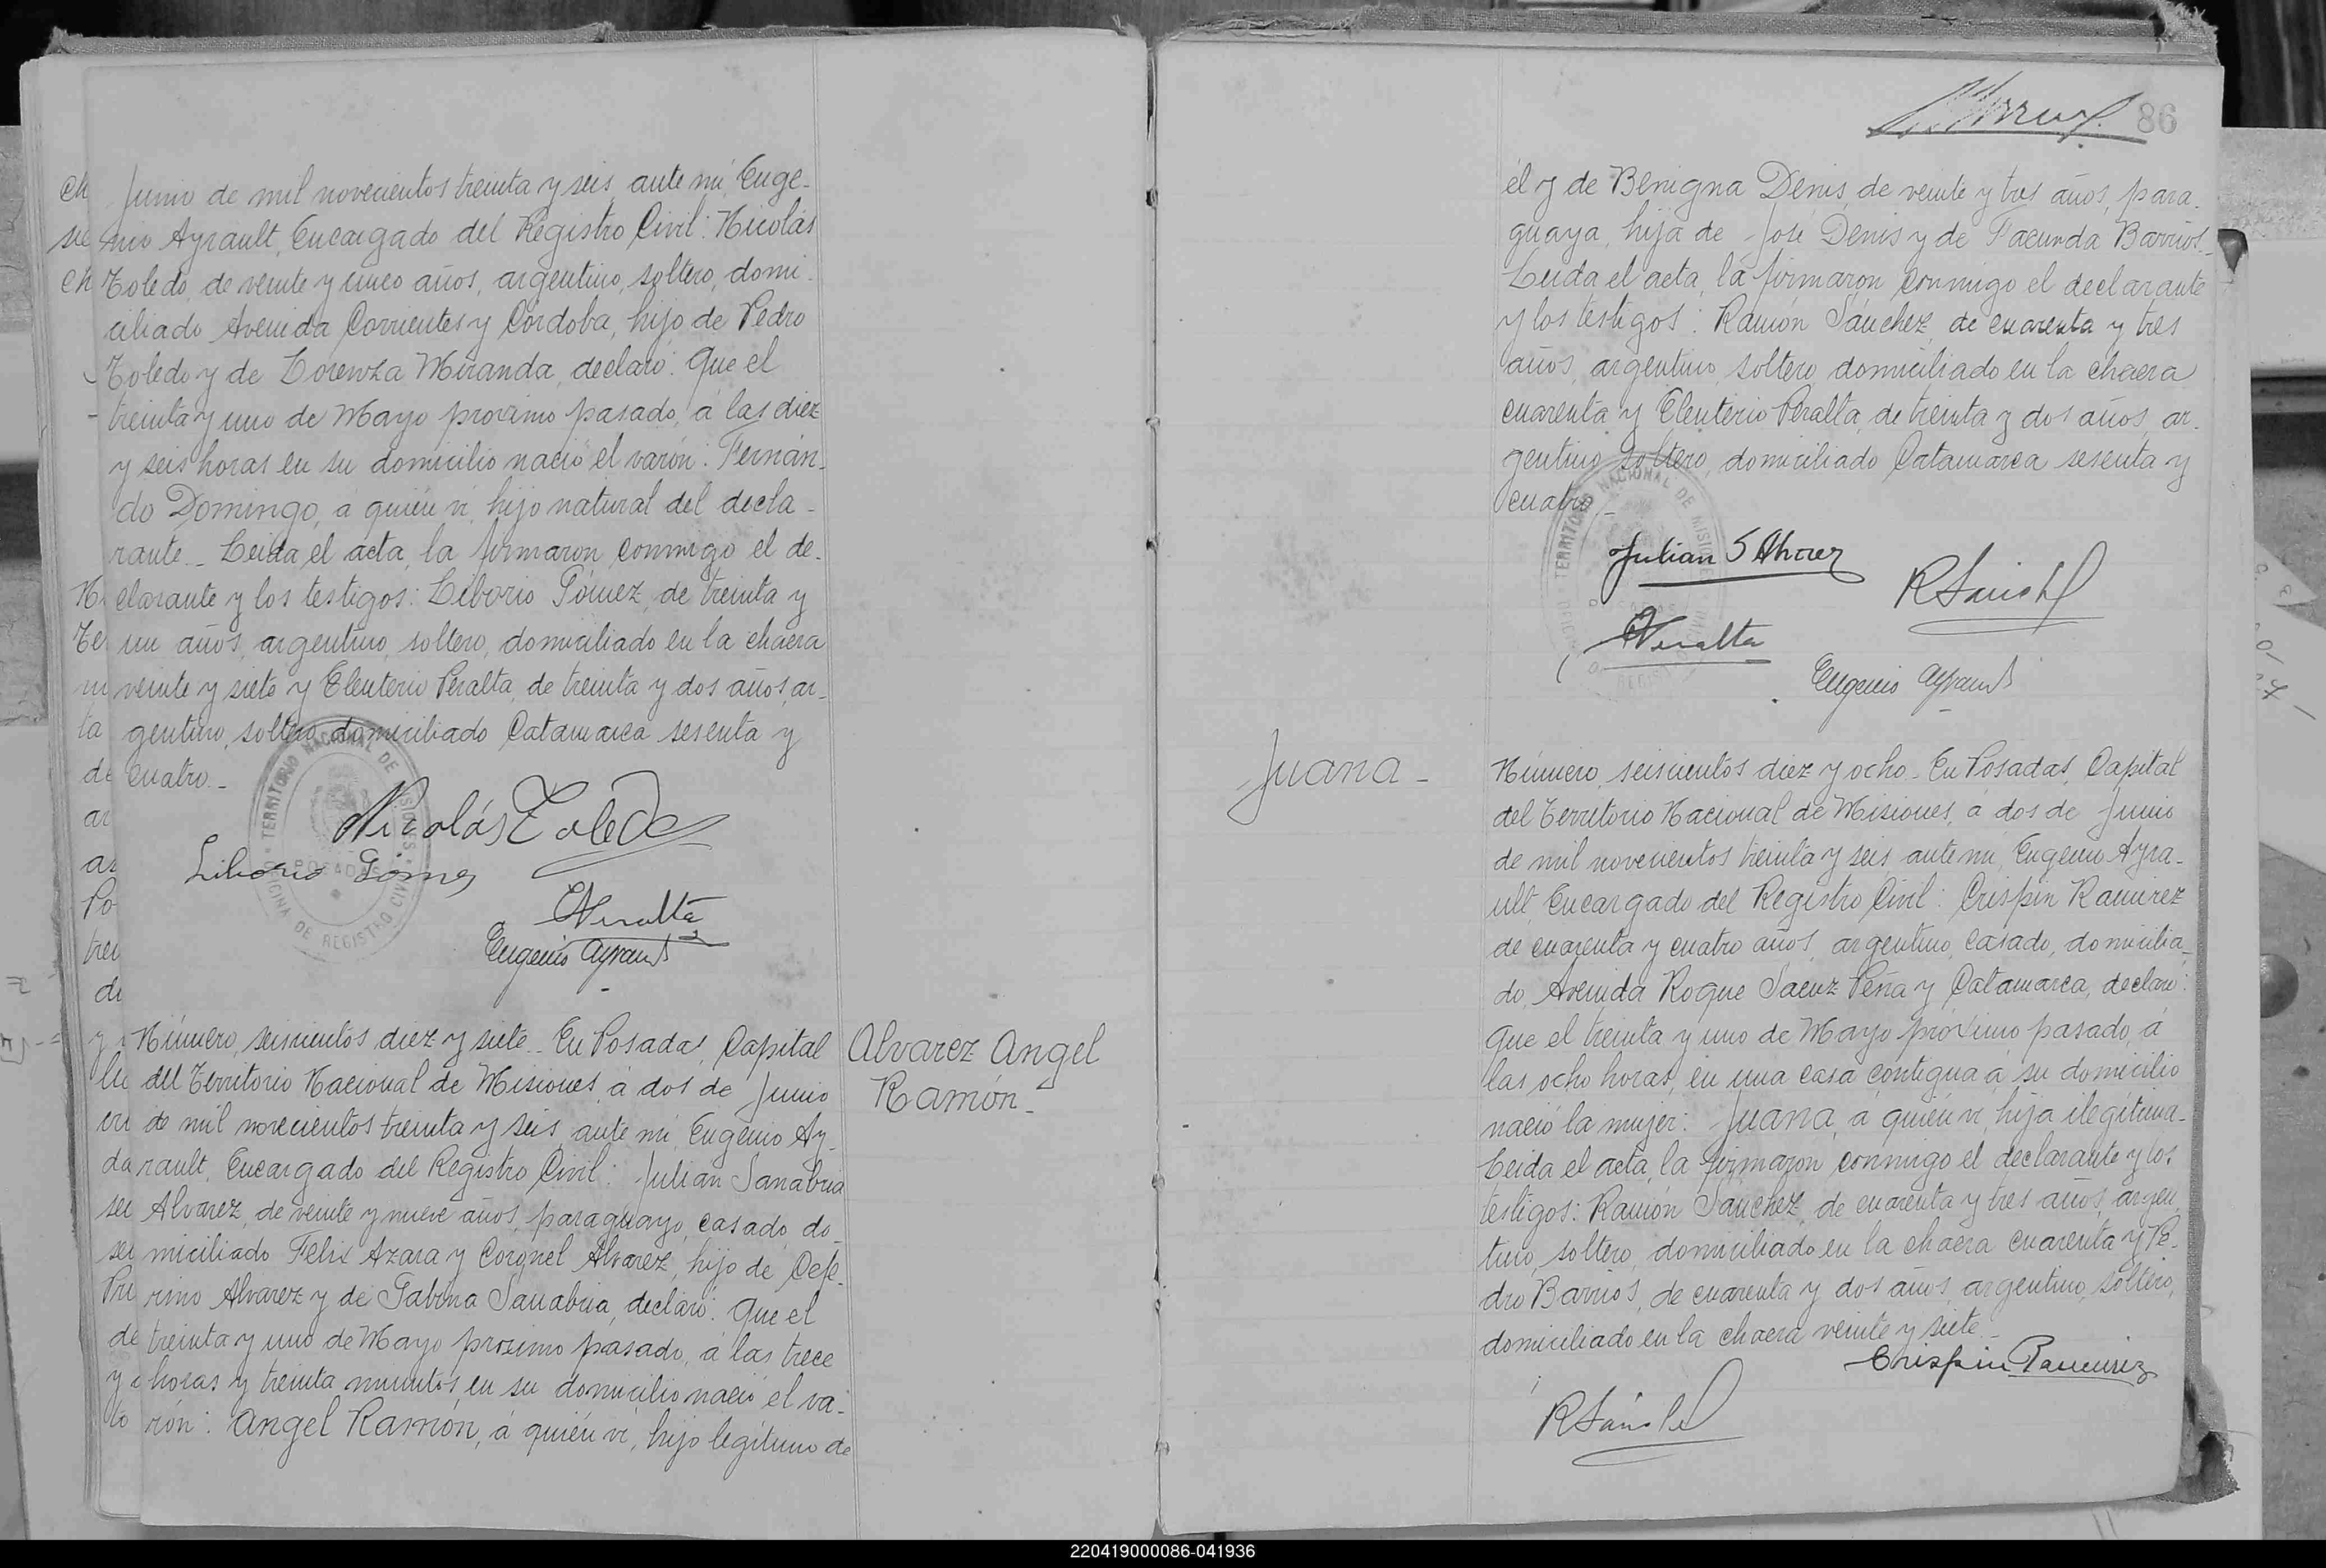 Junio de mil novecientos treinta y seis, ante mi, Euge-
nio Ayrault, Encargado del Registro Civil: Nicolás
Toledo, de veinte y cinco años, argentino, soltero, domi-
ciliado Avenida Corrientes y Córdoba, hijo de Pedro
Toledo y de Lorenza Miranda, declaró: Que el
treinta y uno de Mayo proximo pasado, á las diez
y seis horas en su domicilio nació el varón: Fernán-
do Domingo, á quién ví, hijo natural del decla-
rante.- Leida el acta, la firmaron conmigo el de-
clarante y los testigos: Liborio Gómez, de treinta y
un años, argentino, soltero, domiciliado en la chacra
veinte y siete y Eleuterio Peralta, de treinta y dos años, ar-
gentino, soltero, domiciliado Catamarca sesenta y
cuatro.-
TERRITORIO NACIONAL DE MISIONES
POSADAS
OFICINA DE REGISTRO CIVIL
Nicolás Toledo
Liborio Gómez
EPeralta
Eugenio Ayrault
Número, seiscientos diez y siete.- En Posadas, Capital
del Territorio Nacional de Misiones, á dos de Junio
de mil novecientos treinta y seis, ante mi, Eugenio Ay-
rault, Encargado del Registro Civil: Julian Sanabria
Alvarez, de veinte y nueve años, paraguayo, casado, do-
miciliado Felix Azara y Coronel Alvarez, hijo de Cefe-
rino Alvarez y de Gabina Sanabria, declaró: Que el
treinta y uno de Mayo proximo pasado, á las trece
horas y treinta minutos en su domicilio nació el va-
rón: Angel Ramón, á quién ví, hijo legítimo de
Alvarez Angel
Ramón.-
86
él y de Benigna Denis, de veinte y tres años, para-
guaya, hija de José Denis y de Facunda Barrios.-
Leida el acta, la firmaron conmigo el declarante
y los testigos: Ramón Sánchez, de cuarenta y tres
años, argentino, soltero domiciliado en la chacra
cuarenta y Eleuterio Peralta, de treinta y dos años, ar-
gentino, soltero, domiciliado Catamarca sesenta y
cuatro.-
TERRITORIO NACIONAL DE MISIONES
Julian S Alvarez
RSánchez
EPeralta
Eugenio Ayrault
Juana-
Número, seiscientos diez y ocho.- En Posadas, Capital
del Territorio Nacional de Misiones, á dos de Junio
de mil novecientos treinta y seis, ante mi, Eugenio Ayra-
ult, Encargado del Registro Civil: Crispin Ramirez
de cuarenta y cuatro años, argentino, casado, domicilia-
do, Avenida Roque Saenz Peña y Catamarca, declaró:
Que el treinta y uno de Mayo próximo pasado, á
las ocho horas, en una casa contigua á su domicilio
nació la mujer: Juana, á quién ví, hija ilegítima.-
Leida el acta, la firmaron conmigo el declarante y los
testigos: Ramón Sánchez, de cuarenta y tres años, argen-
tino, soltero, domiciliado en la chacra cuarenta y Pe-
dro Barrios, de cuarenta y dos años, argentino, soltero,
domiciliado en la chacra veinte y siete.-
Crispin Ramirez
RSánchez
220419000086-041936